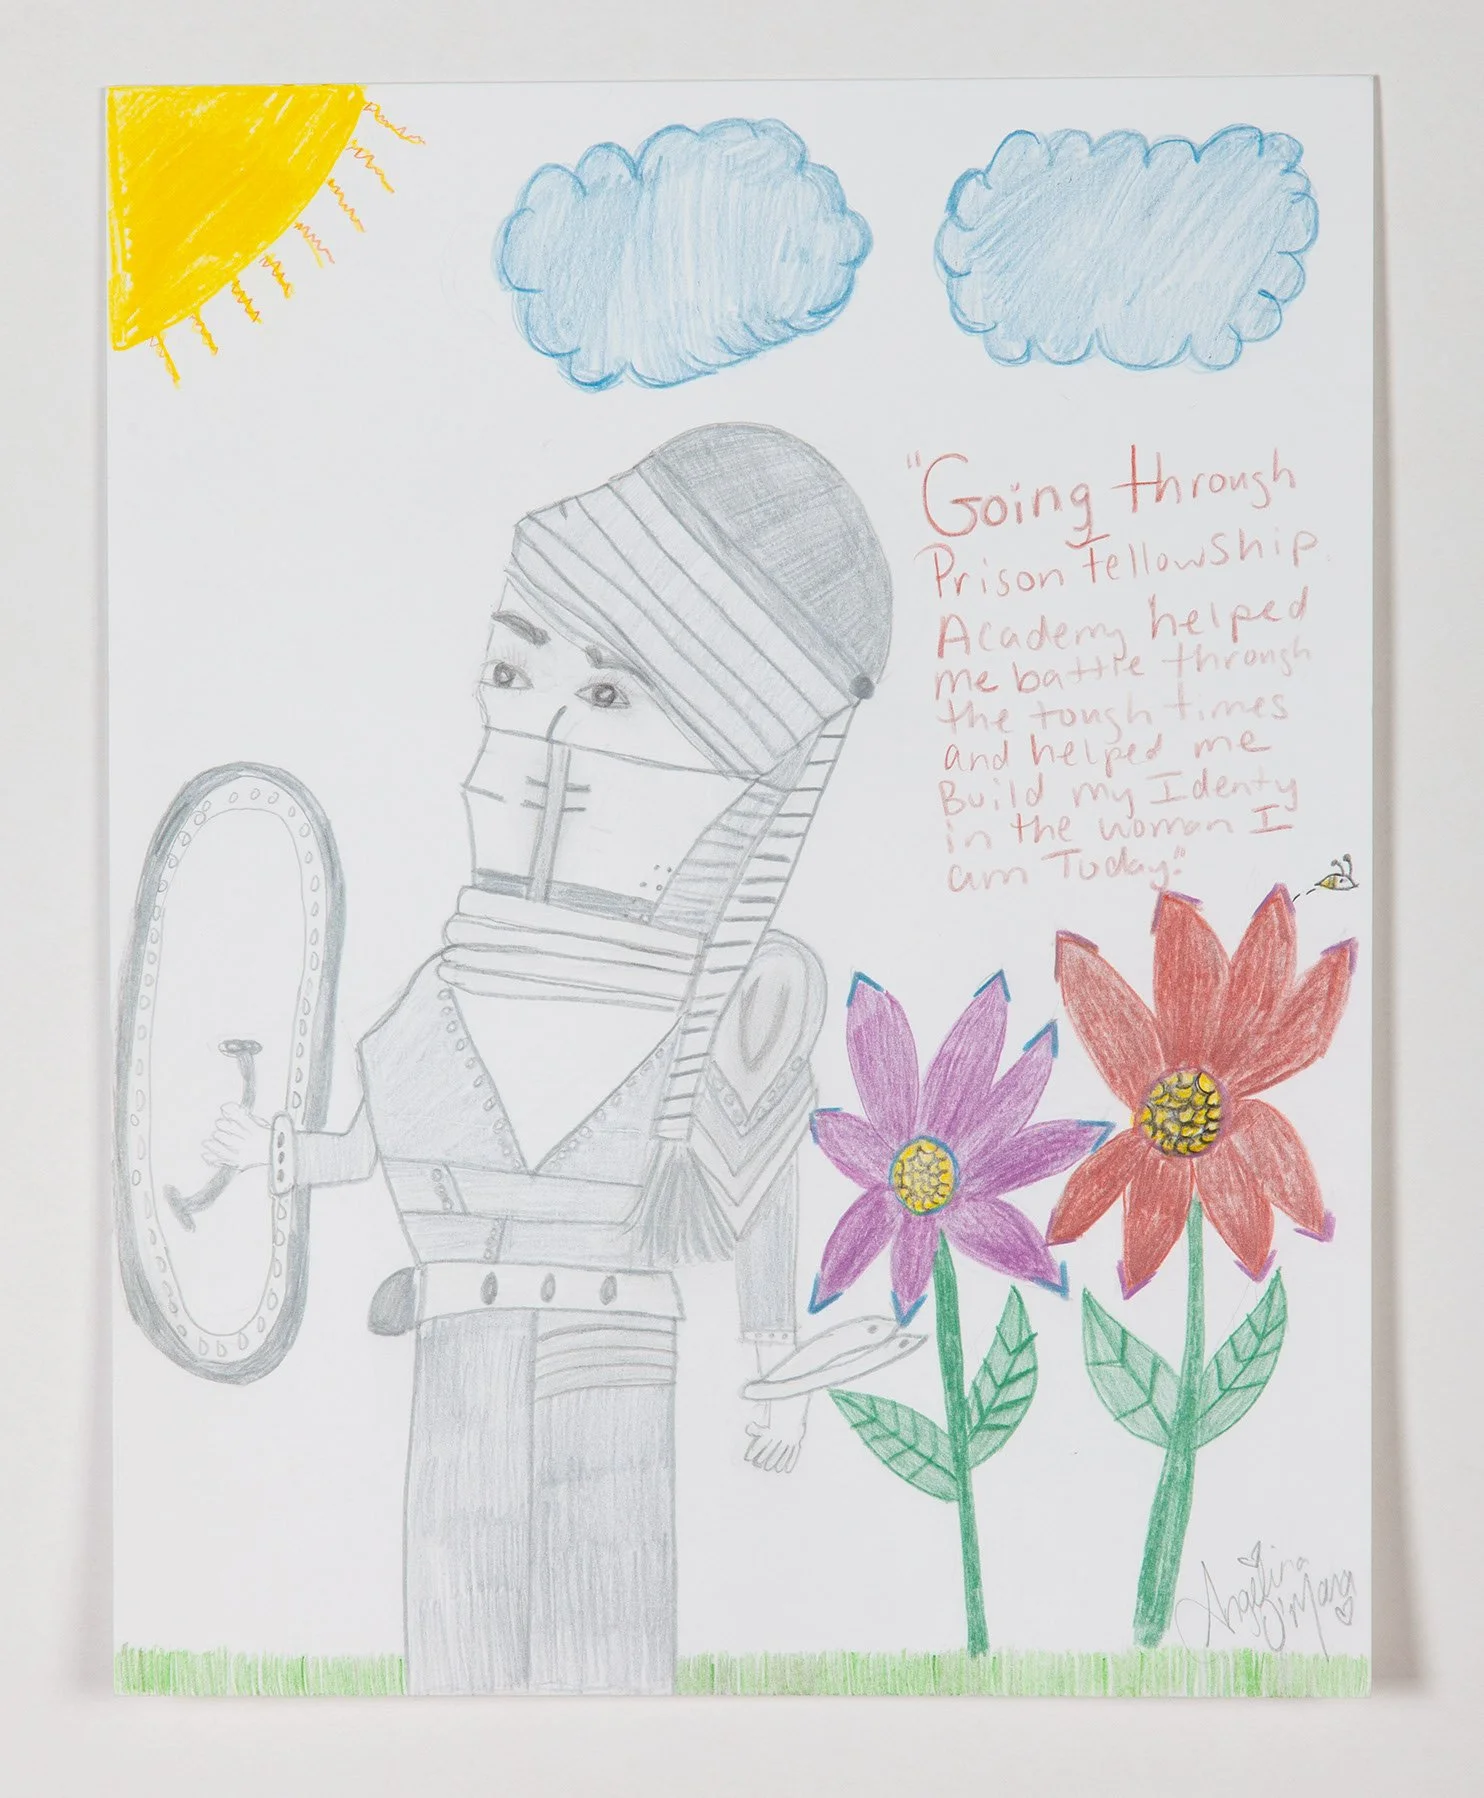 "Going through
Prison fellowship
Academy helped
me battle through
the tough times
and helped me
Build my Identy
in the woman I
am Today."
Angelina
Mara